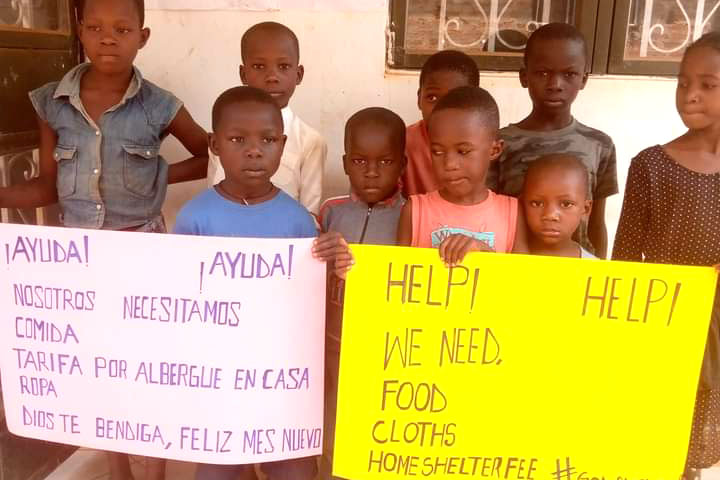 ¡AYUDA! ¡AYUDA!
NOSOTROS NECESITAMOS
COMIDA
TARIFA POR ALBERGUE EN CASA
ROPA
DIOS TE BENDIGA, FELIZ MES NUEVO
HELP! HELP!
WE NEED,
FOOD
CLOTHS
HOMESHELTERFEE